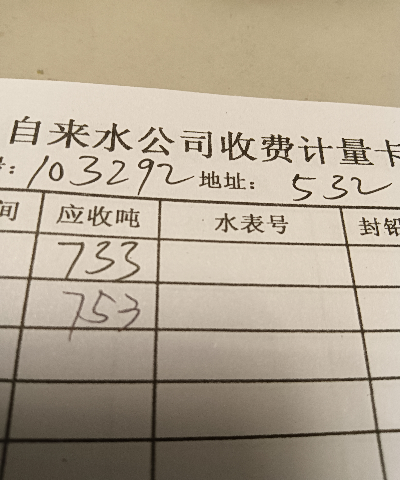 自来水公司收费计量卡
号：103292 地址：532
间 应收吨 水表号 封铅
733
753